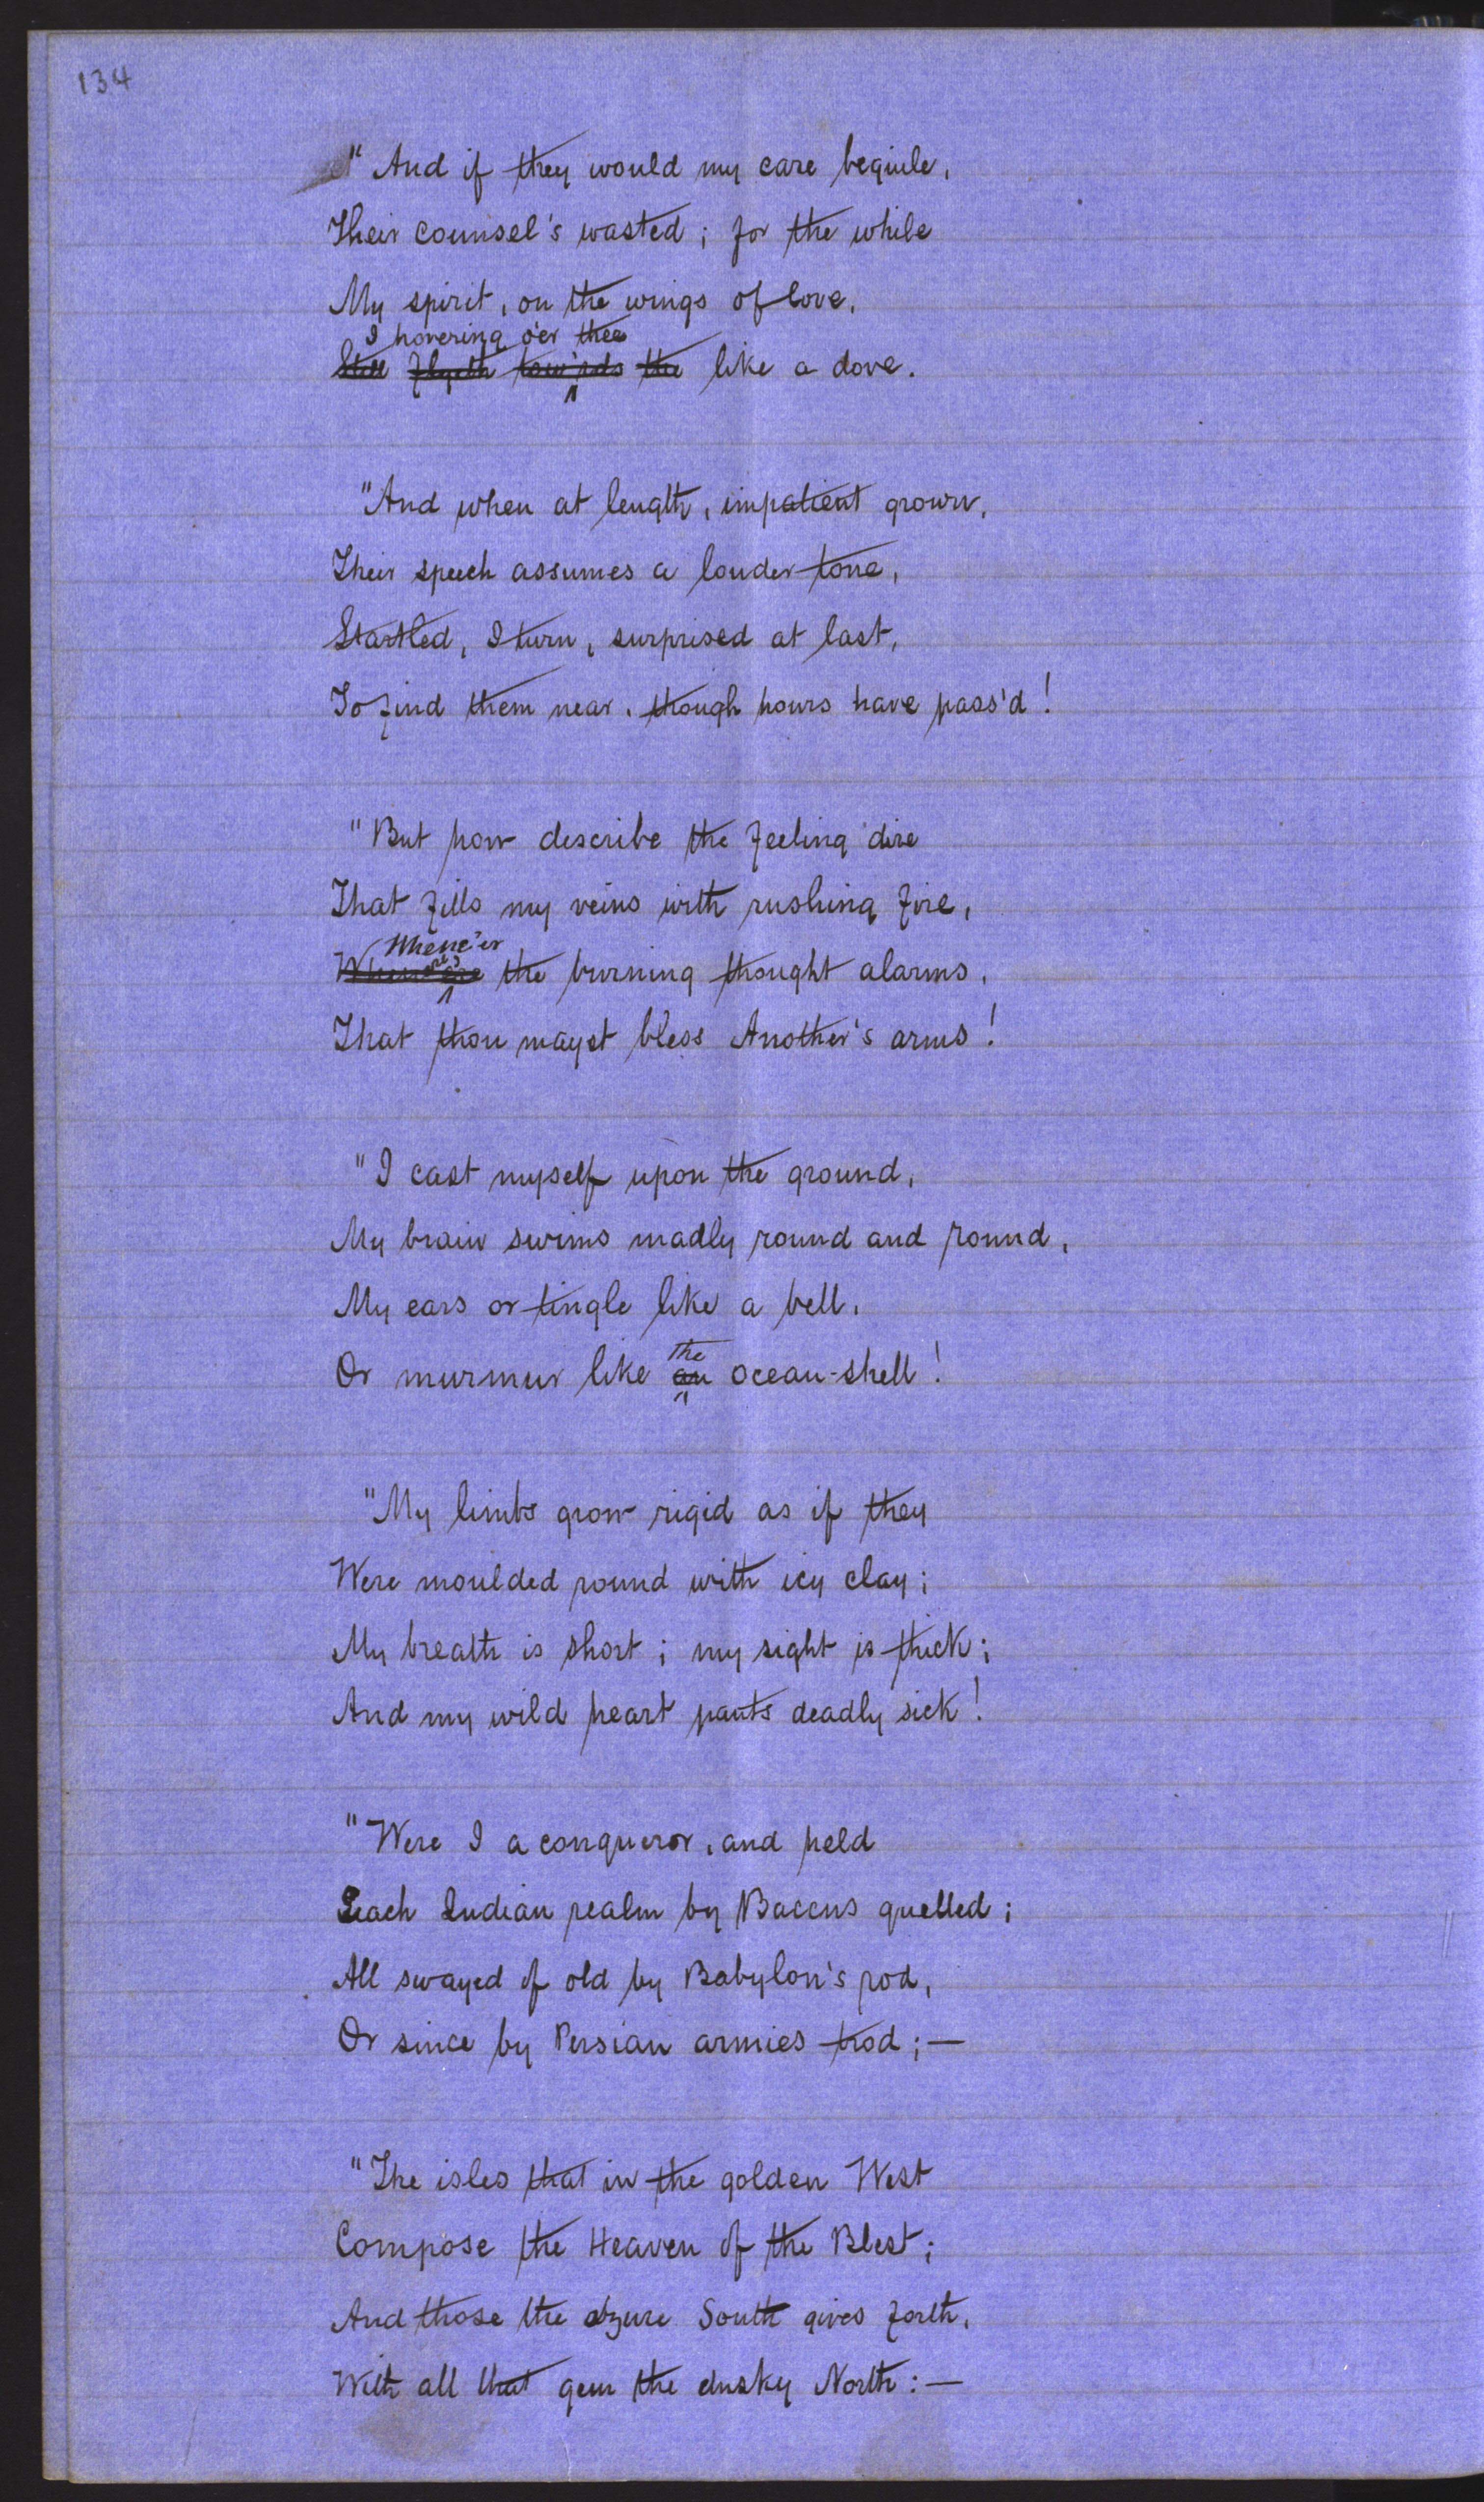 134
" And if they would my care beguile,
Their counsel's wasted; for the while
My spirit, on the wings of love,
I hovering o'er thee
Still flyeth tow'rds the like a dove.
"And when at length, impatient grown,
Their speech assumes a louder tone,
Startled, I turn, surprised at last,
To find them near, though hours have pass'd!
"But how describe the feeling dire
That fills my veins with rushing fire,
Whene'er
the burning thought alarms,
That thou mayst bless Another's arms!
"I cast myself upon the ground,
My brain swims madly round and round,
My ears or tingle like a bell,
the
Or murmur like an ocean-shell!
"My limbs grow rigid as if they
Were moulded round with icy clay;
My breath is short; my sight is thick;
And my wild heart pants deadly sick!
"Were I a conqueror, and held
Each Indian realm by Baccus quelled;
All swayed of old by Babylon's rod,
Or since by Persian armies trod;—
"The isles that in the golden West
Compose the Heaven of the Blest;
And those the azure South gives forth,
With all that gem the dusky North:—